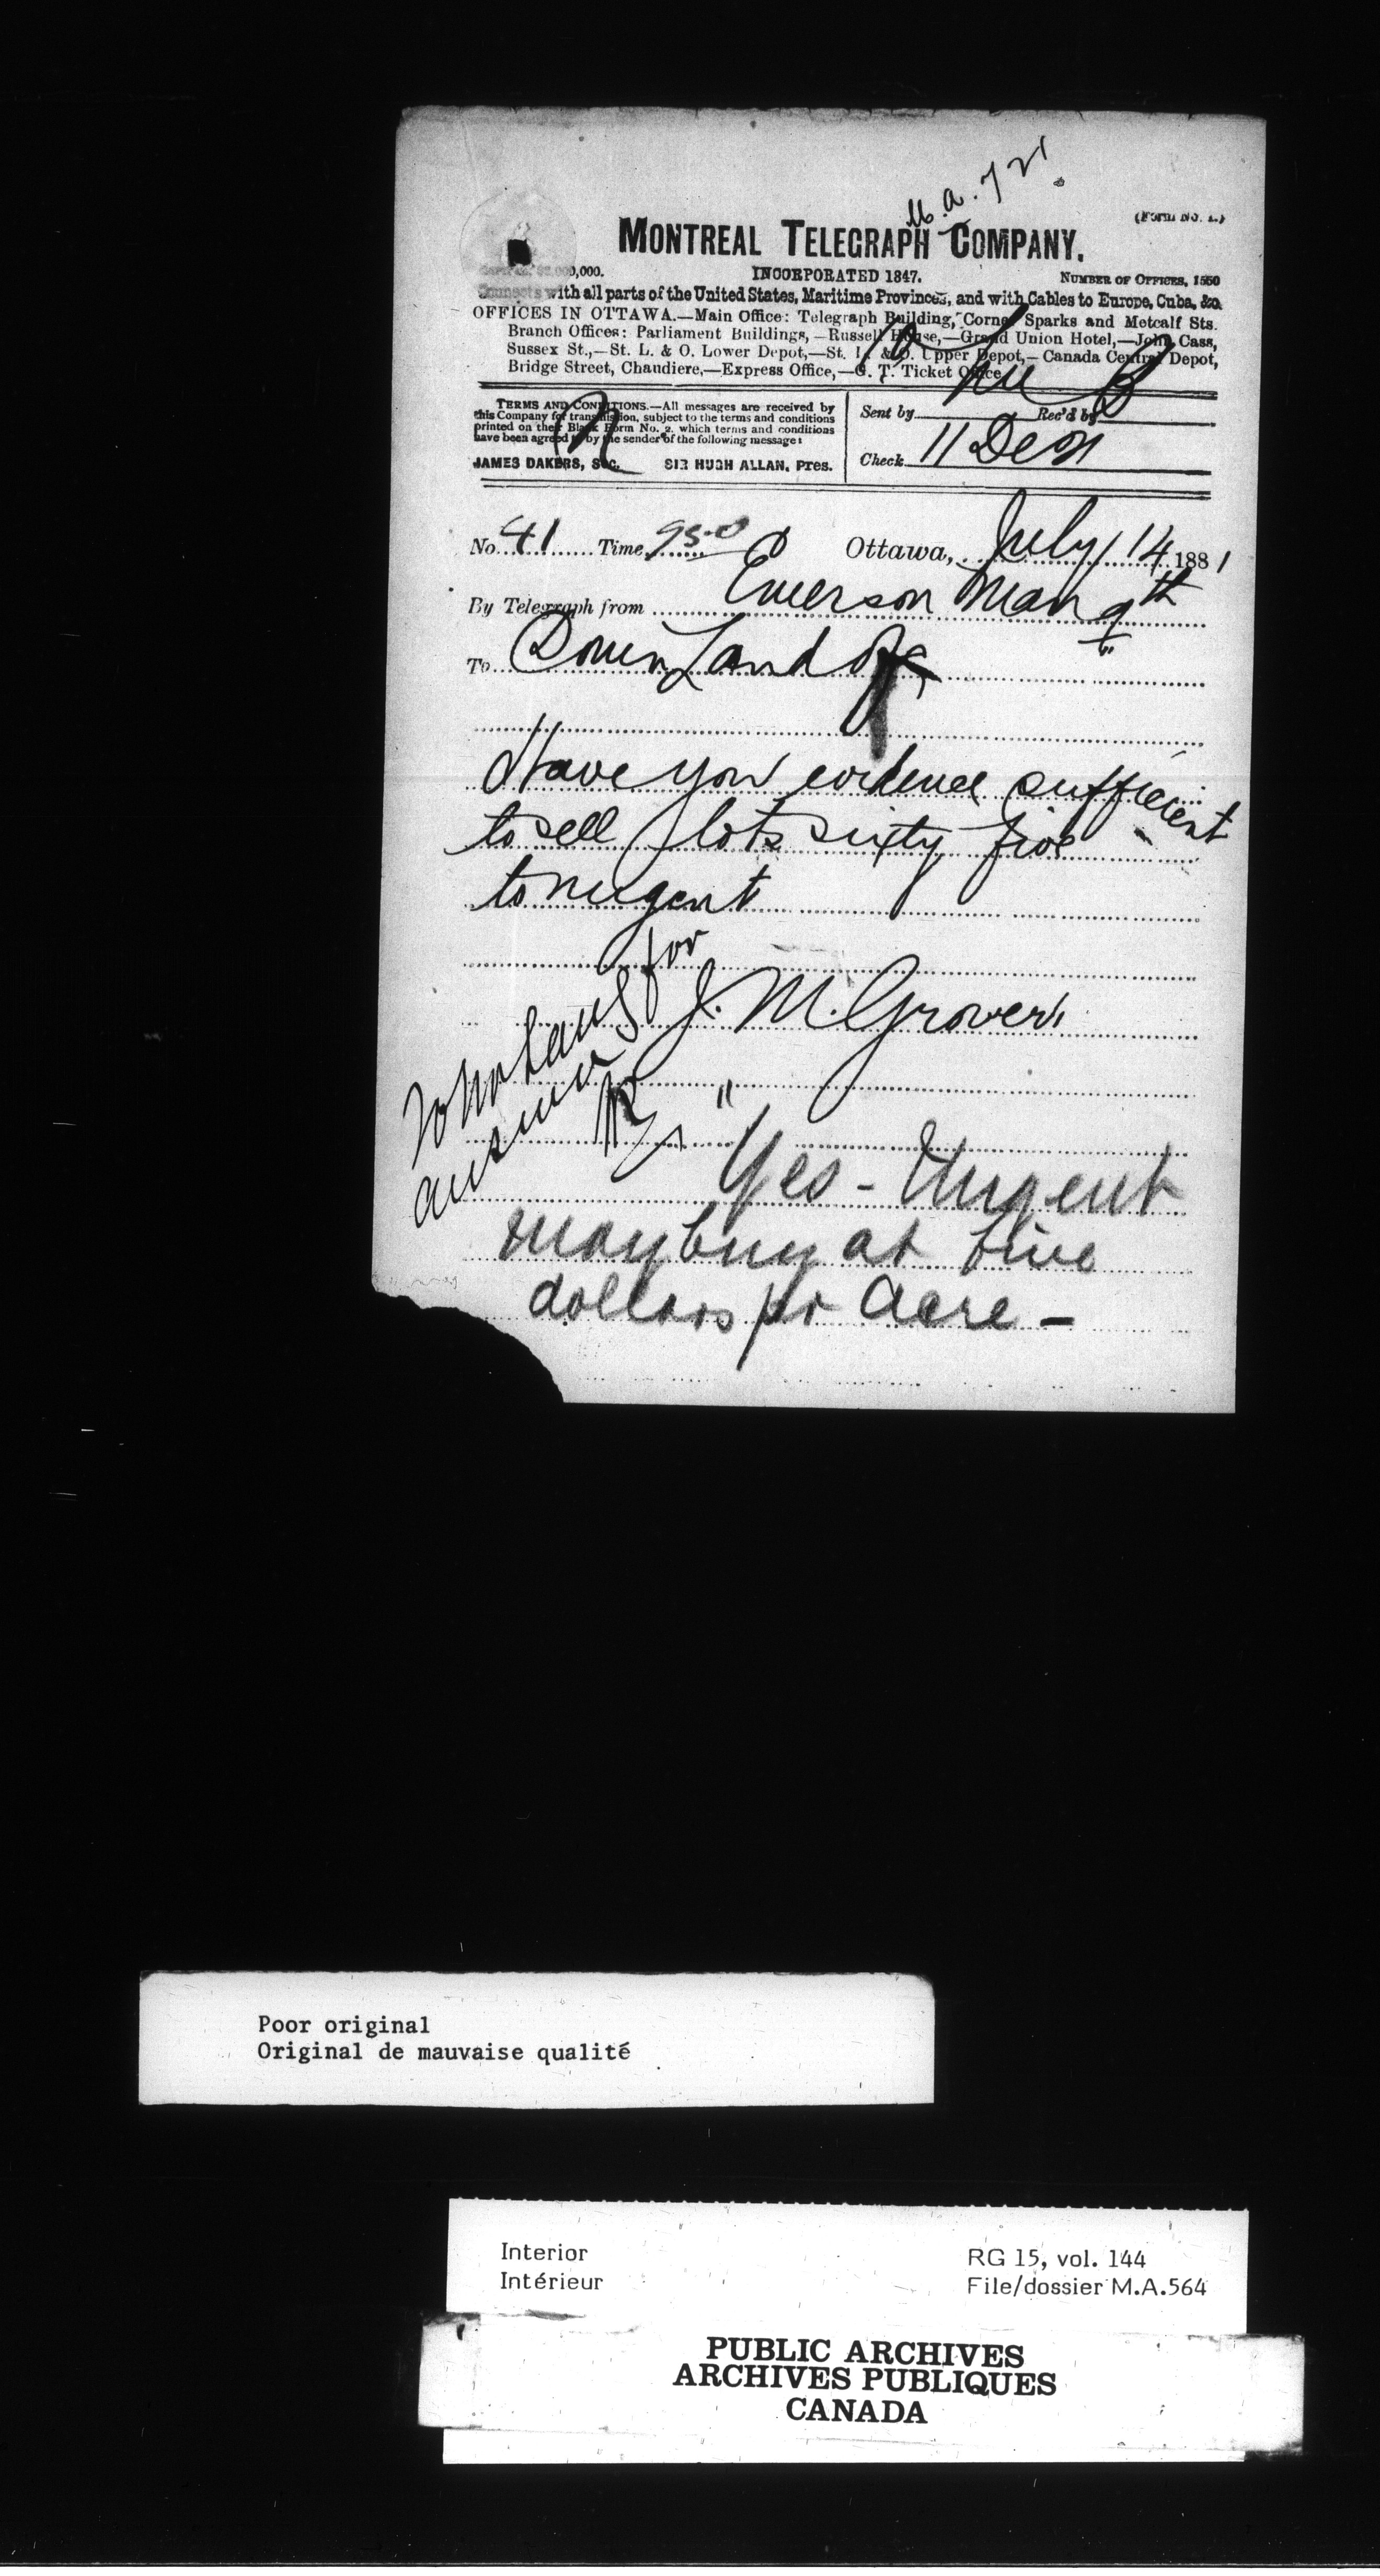 M.A. 721
(Form No. 1.)
MONTREAL TELEGRAPH COMPANY.
INCORPORATED 1847.
NUMBER OF OFFICES, 1550
Connects with all parts of the United States, Maritime Provinces, and with Cables to Europe, Cuba, &c.
OFFICES IN OTTAWA.—Main Office: Telegraph Building, Corner Sparks and Metcalf Sts.
Branch Offices: Parliament Buildings,—Russell House,—Grand Union Hotel,—John Cass,
Sussex St.,—St. L. & O. Lower Depot,—St. L. & O. Upper Depot,—Canada Central Depot,
Bridge Street, Chaudiere,—Express Office,—G. T. Ticket Office
TERMS AND CONDITIONS.—All messages are received by
this Company for transmission, subject to the terms and conditions
printed on their Blank Form No. 2, which terms and conditions
have been agreed to by the sender of the following message:
JAMES DAKERS, Sec. SIR HUGH ALLAN, Pres.
Sent by Rec'd by
Check 11
No. 41 Time 950 Ottawa, July 14 1881
By Telegraph from Emerson Man 9th
To Domn Land
Have you evidence sufficient
to sell lots sixty five
to nugent
J. M. Grover
for
answer
Yes - Nugent
may buy at five
dollars pr acre -
Poor original
Original de mauvaise qualité
Interior RG 15, vol. 144
Intérieur File/dossier M.A.564
PUBLIC ARCHIVES
ARCHIVES PUBLIQUES
CANADA